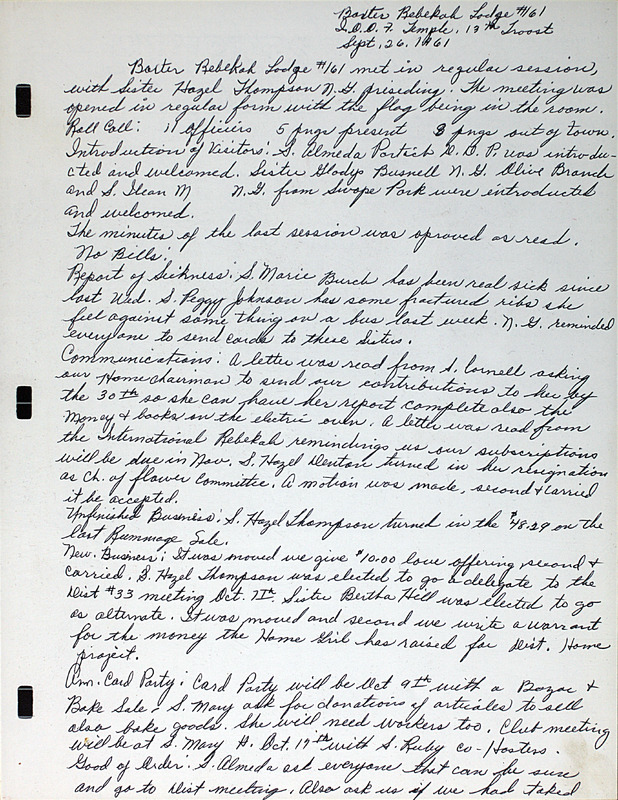 Baxter Rebekah Lodge #161
I.O.O.F. Temple, 19th Troost
Sept. 26, 1961
Baxter Rebekah Lodge #161 met in regular session,
with Sister Hazel Thompson N.G. presiding. The meeting was
opened in regular form with the flag being in the room.
Roll Call: 11 Officers 5 pngs present 8 pngs out of town.
Introduction of Visitors: S. Almeda Portich D.D.P. was introdu-
cted and welcomed. Sister Gladys Busnell N.G. Olive Branch
and S. Ilean M N.G. from Swope Park were introducted
and welcomed.
The minutes of the last session was aproved as read.
No Bills:
Report of Sickness: S. Marie Burch has been real sick since
last Wed. S. Peggy Johnson has some fractured ribs she
feel against some thing on a bus last week. N.G. reminded
everyone to send cards to these Sisters.
Communications: A letter was read from S. Cornell asking
our Homechairman to send our contributions to her by
the 30th so she can have her report complete also the
Money & books on the electric oven. A letter was read from
the International Rebekah remindings us our subscriptions
will be due in Nov. S. Hazel Denton turned in her resignation
as Ch. of flower Committee. A motion was made, second & carried
it be accepted.
Unfinished Business: S. Hazel Thompson turned in the $48.29 on the
last Rummage Sale.
New. Business: It was moved we give $10.00 love offering second &
carried. S. Hazel Thompson was elected to go a delegate to the
Dist #33 meeting Oct. 7th. Sister Bertha Hill was elected to go
as alternate. It was moved and second we write a warrant
for the money the Home has raised for Dist. Home
project.
Ann. Card Party: Card Party will be Oct 9th with a Bazar &
Bake Sale. S. Mary ask for donations of articales to sell
also bake goods. She will need workers too. Club meeting
will be at S. Mary H. Oct. 19th with S. Ruby co-Hostess.
Good of Order: S. Almeda ask everyone that can be sure
and go to Dist meeting. Also ask us if we had taked